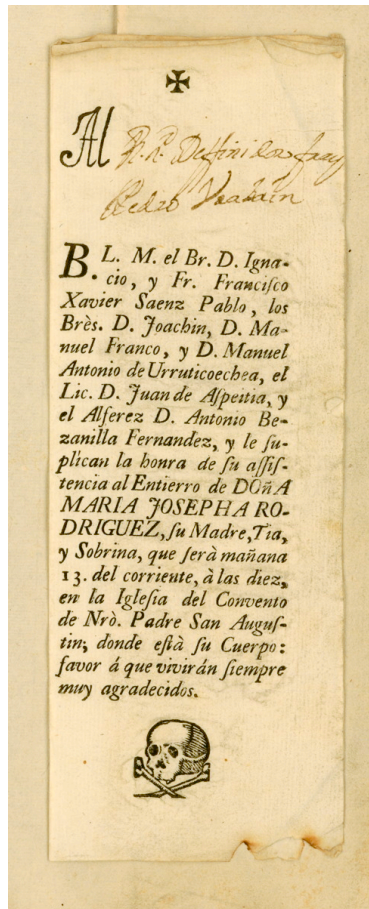 ✠
Al R. P. Diffinidor fray
Pedro
B. L. M. el Br. D. Igna-
cio, y Fr. Franciſco
Xavier Saenz Pablo, los
Brès. D. Joachin, D. Ma-
nuel Franco, y D. Manuel
Antonio de Urruticoechea, el
Lic. D. Juan de Aſpeitia, y
el Alferez D. Antonio Be-
zanilla Fernandez, y le ſu-
plican la honra de ſu aſſiſ-
tencia al Entierro de DOñA
MARIA JOSEPHA RO-
DRIGUEZ, ſu Madre, Tia,
y Sobrina, que ſerà mañana
13. del corriente, à las diez,
en la Igleſia del Convento
de Nrò. Padre San Auguſ-
tin; donde eſtà ſu Cuerpo:
favor á que vivirán ſiempre
muy agradecidos.